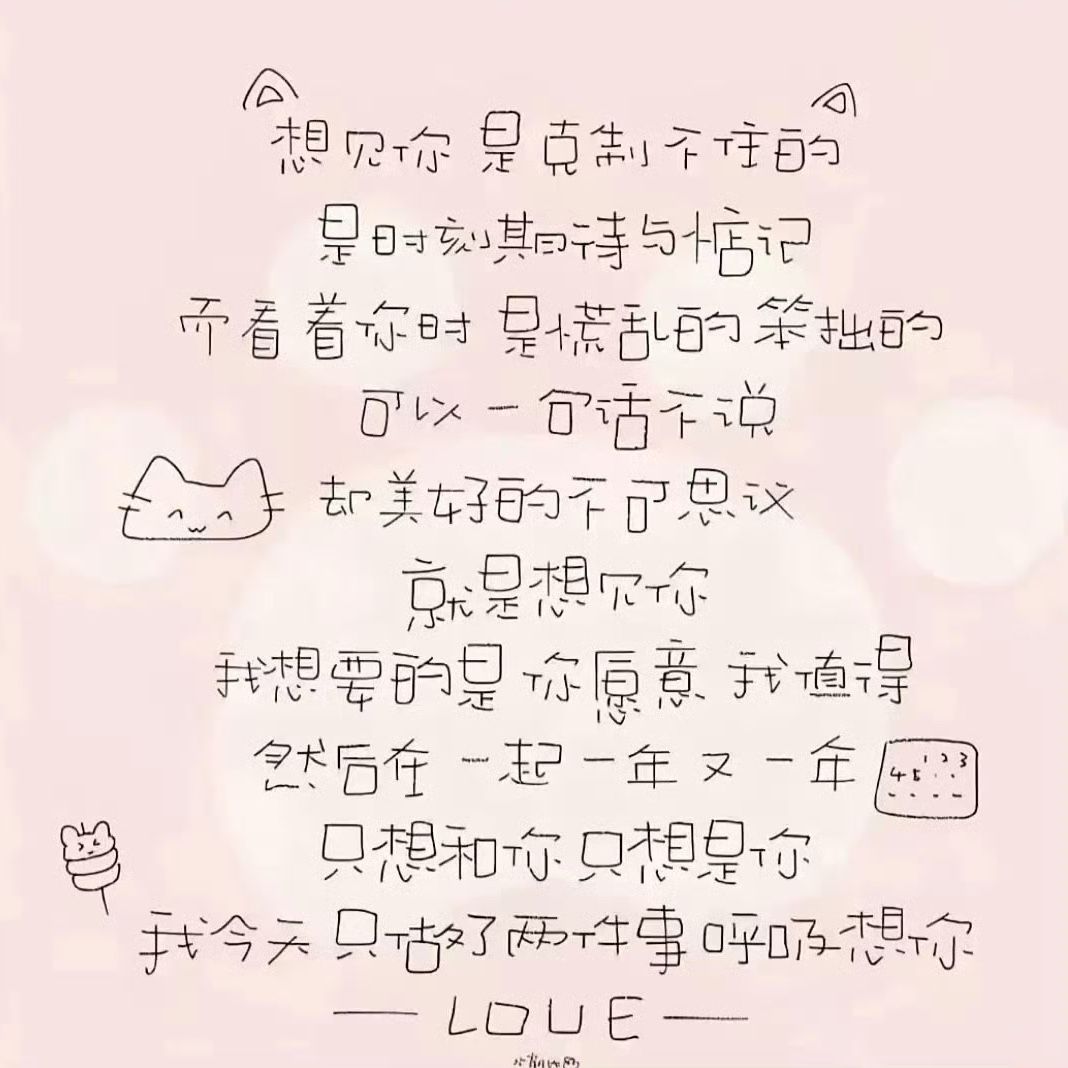 想见你 是克制不住的
是时刻期待与惦记
而看着你时 是慌乱的笨拙的
可以一句话不说
却美好的不可思议
就是想见你
我想要的是 你愿意 我值得
然后在一起一年又一年
1 2 3
4 5
只想和你 只想是你
我今天只做了两件事呼吸想你
LOUE